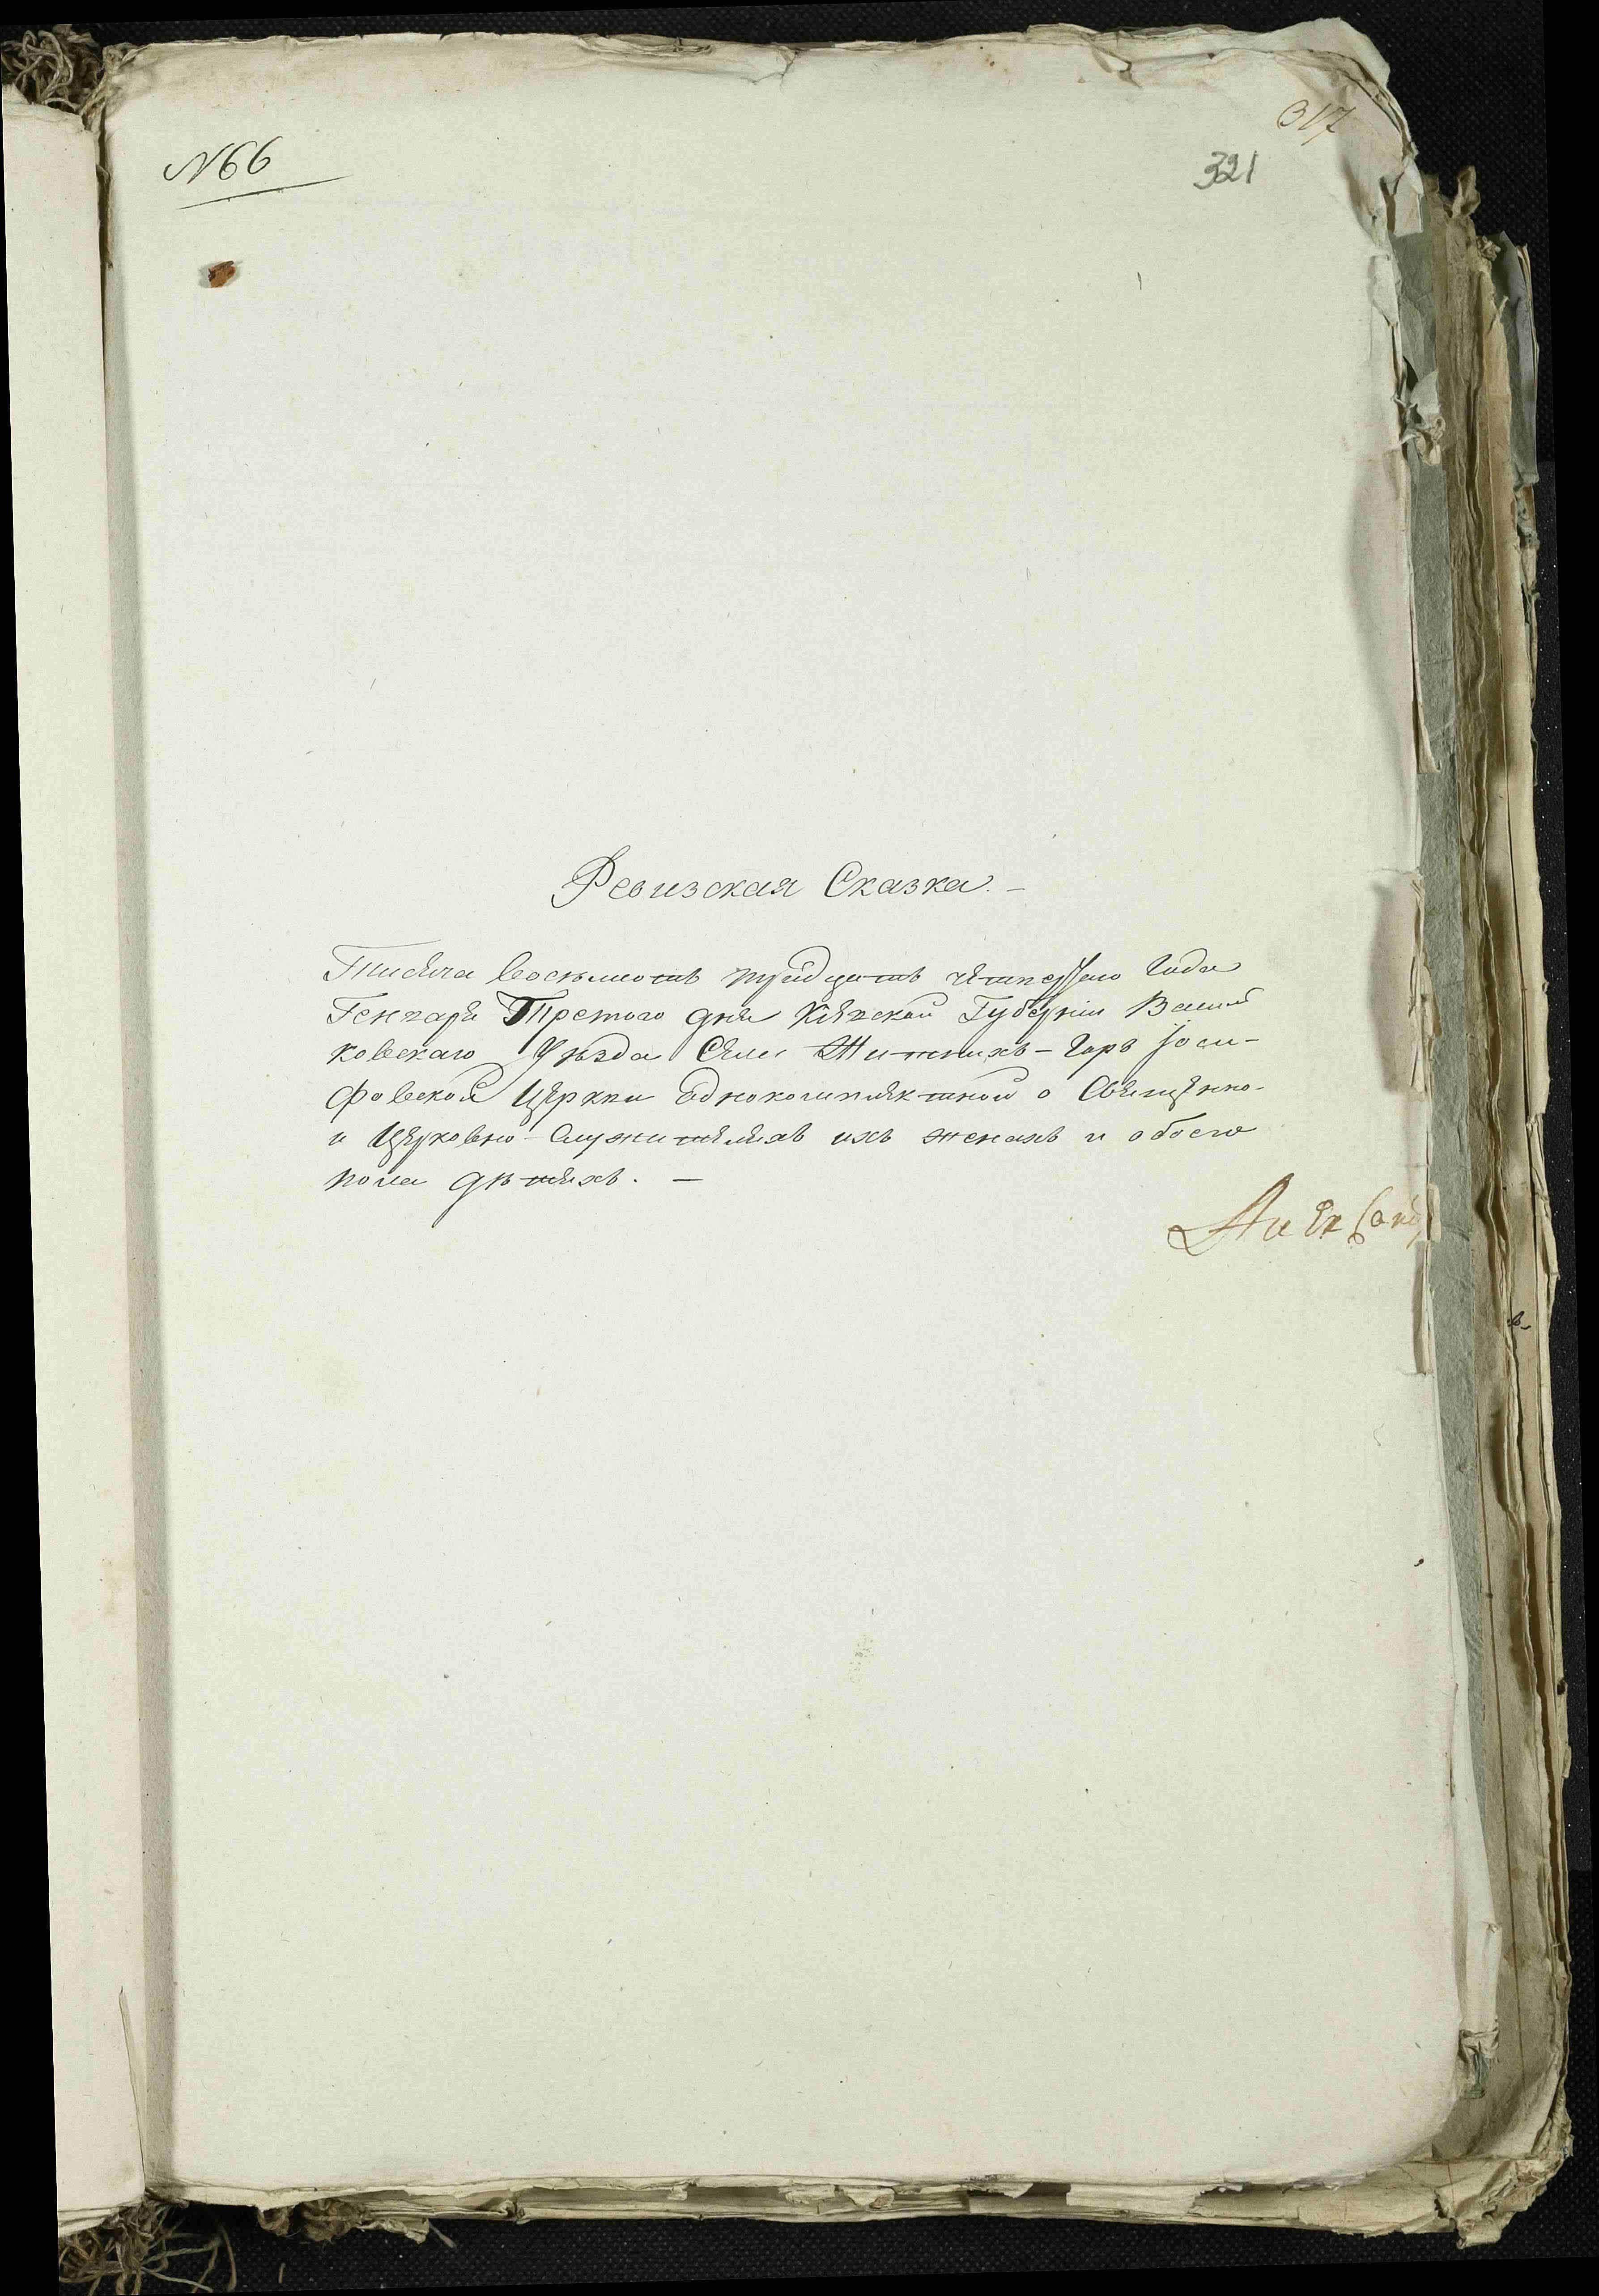 N 66
317
321
Ревизская Сказка. —
Тисяча восъмьсотъ тридцать четвертаго Года
Генваря Третого дня Кіевской Губерніи Василь
ковскаго Уѣзда Села Житнихъ-Горъ Іоси-
фовской Церкви однокомплектной о Священно-
и Церковно-служителяхъ ихъ женахъ и обоего
пола дѣтяхъ. —
Александ